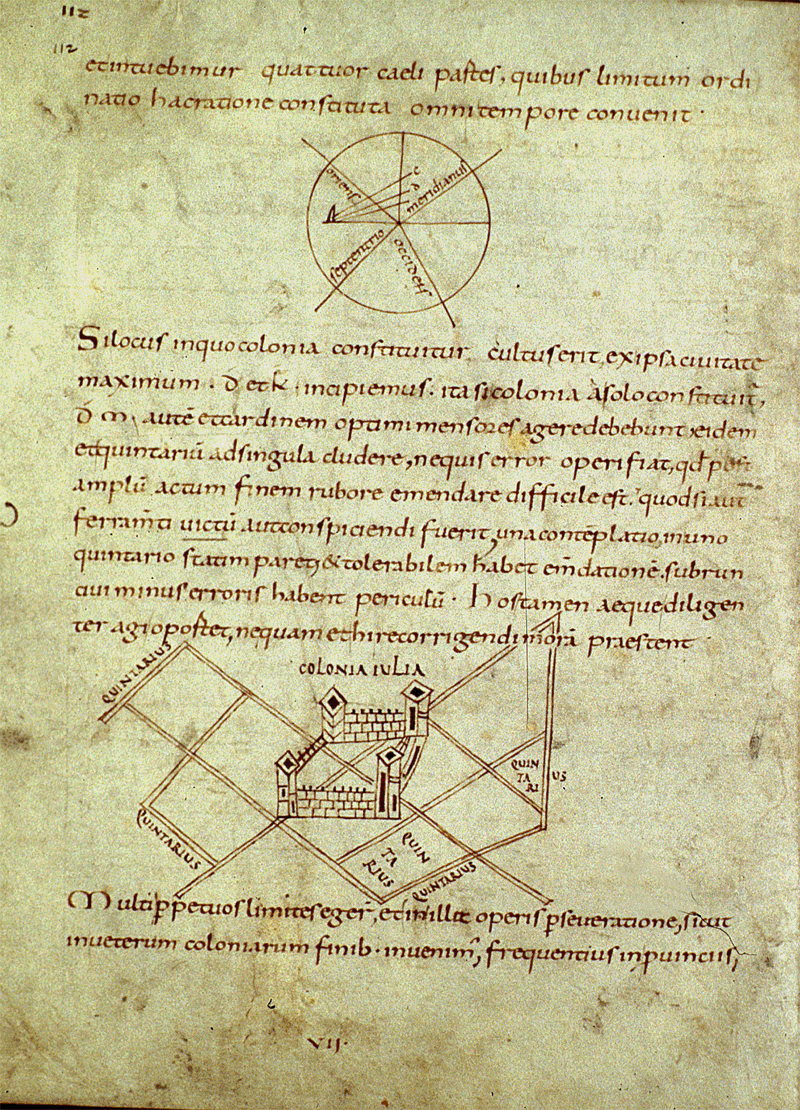 112
112
et intuebimur quattuor caeli partes, quibus limitum ordi
natio hac ratione constituta omni tempore convenit.
oriens
c
d
meridianus
septentrio
occidens
Si locus in quo colonia constituitur cultus erit, ex ipsa civitate
maximum. D et K. incipiemus. ita si colonia a solo constituit,
D M. autē et cardinem optimi mensores agere debebunt, et idem
et quintariū ad singula cludere, ne quis error operi fiat, qđ post
amplū actum finem rubore emendare difficile est. quod si aut
ferram̄ti victū aut conspiciendi fuerit, una contēplatio in uno
quintario statim paret, & tolerabilem habet em̄dationē. subrun
civi minus erroris habent periculū. hos tamen aeque diligen
ter agi oportet, ne quam et hi recorrigendi morā praestent.
COLONIA IULIA
QUINTARIUS
QUINTARIUS
QUIN
TA
RI
US
QUIN
TA
RIUS
QUINTARIUS
Multi p̄petuos limites eger̄, et in illa operis p̄severatione, sicut
in veterum coloniarum finib. invenim̄, frequentius in puincus;
VII.